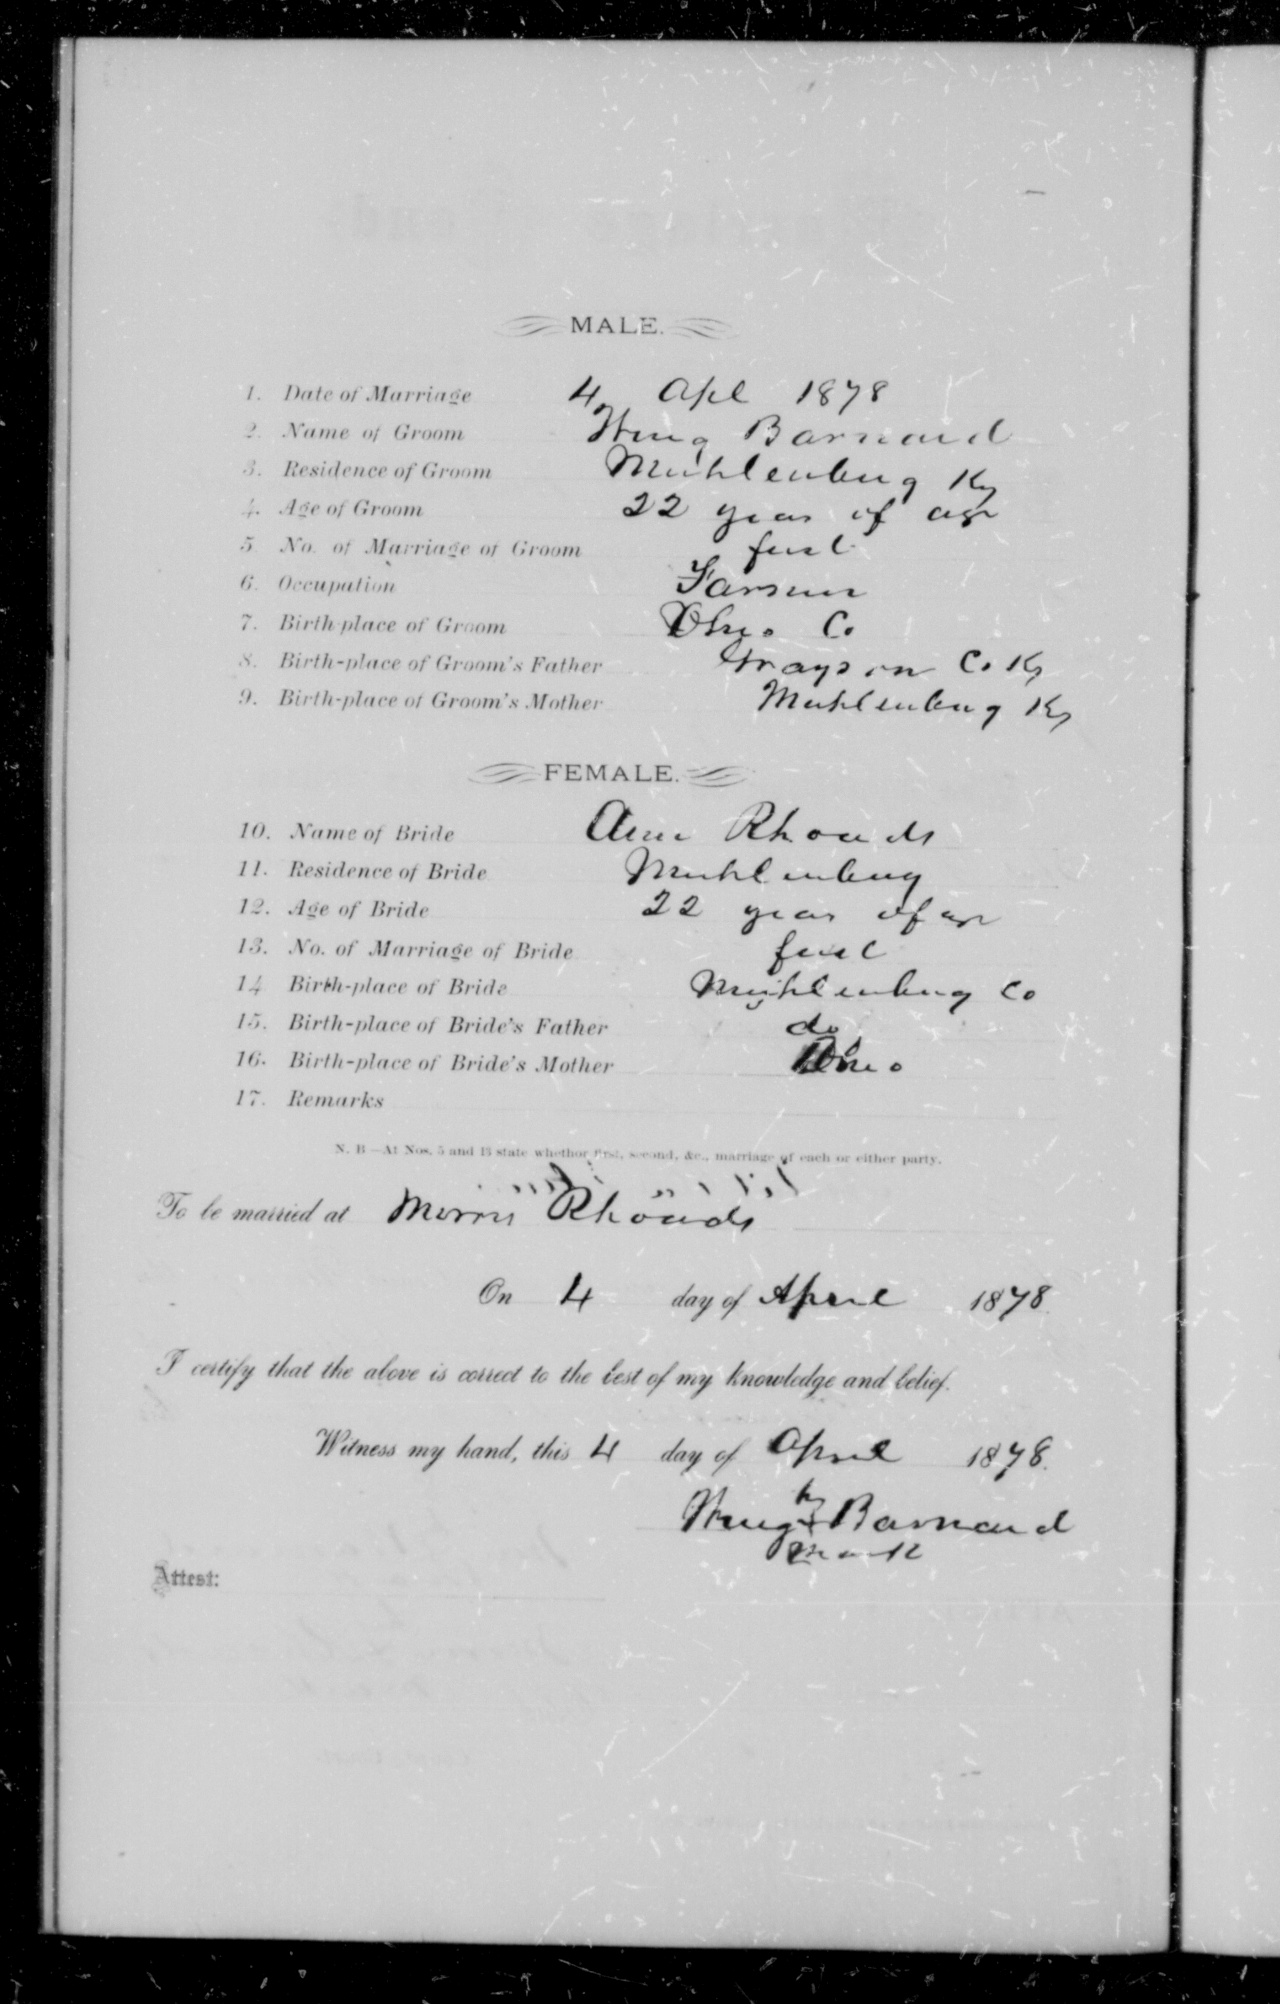 MALE.
1. Date of Marriage 4 Apl 1878
2. Name of Groom Henry Barnard
3. Residence of Groom Muhlenburg Ky
4. Age of Groom 22 years of age
5 No. of Marriage of Groom first
6. Occupation Farmer
7. Birth-place of Groom Ohio Co
8. Birth-place of Groom's Father Grayson Co Ky
9. Birth-place of Groom's Mother Muhlenburg Ky
FEMALE.
10. Name of Bride Ann Rhoads
11. Residence of Bride Muhlenburg
12. Age of Bride 22 years of age
13. No. of Marriage of Bride first
14 Birth-place of Bride Muhlenburg Co
15. Birth-place of Bride's Father do
16. Birth-place of Bride's Mother Ohio
17. Remarks
N. B—At Nos. 5 and 13 state whether first, second, &c., marriage of each or either party.
To be married at Morris Rhoads
On 4 day of April 1878
I certify that the above is correct to the best of my knowledge and belief.
Witness my hand, this 4 day of April 1878.
Henry Barnard
mark
Attest: